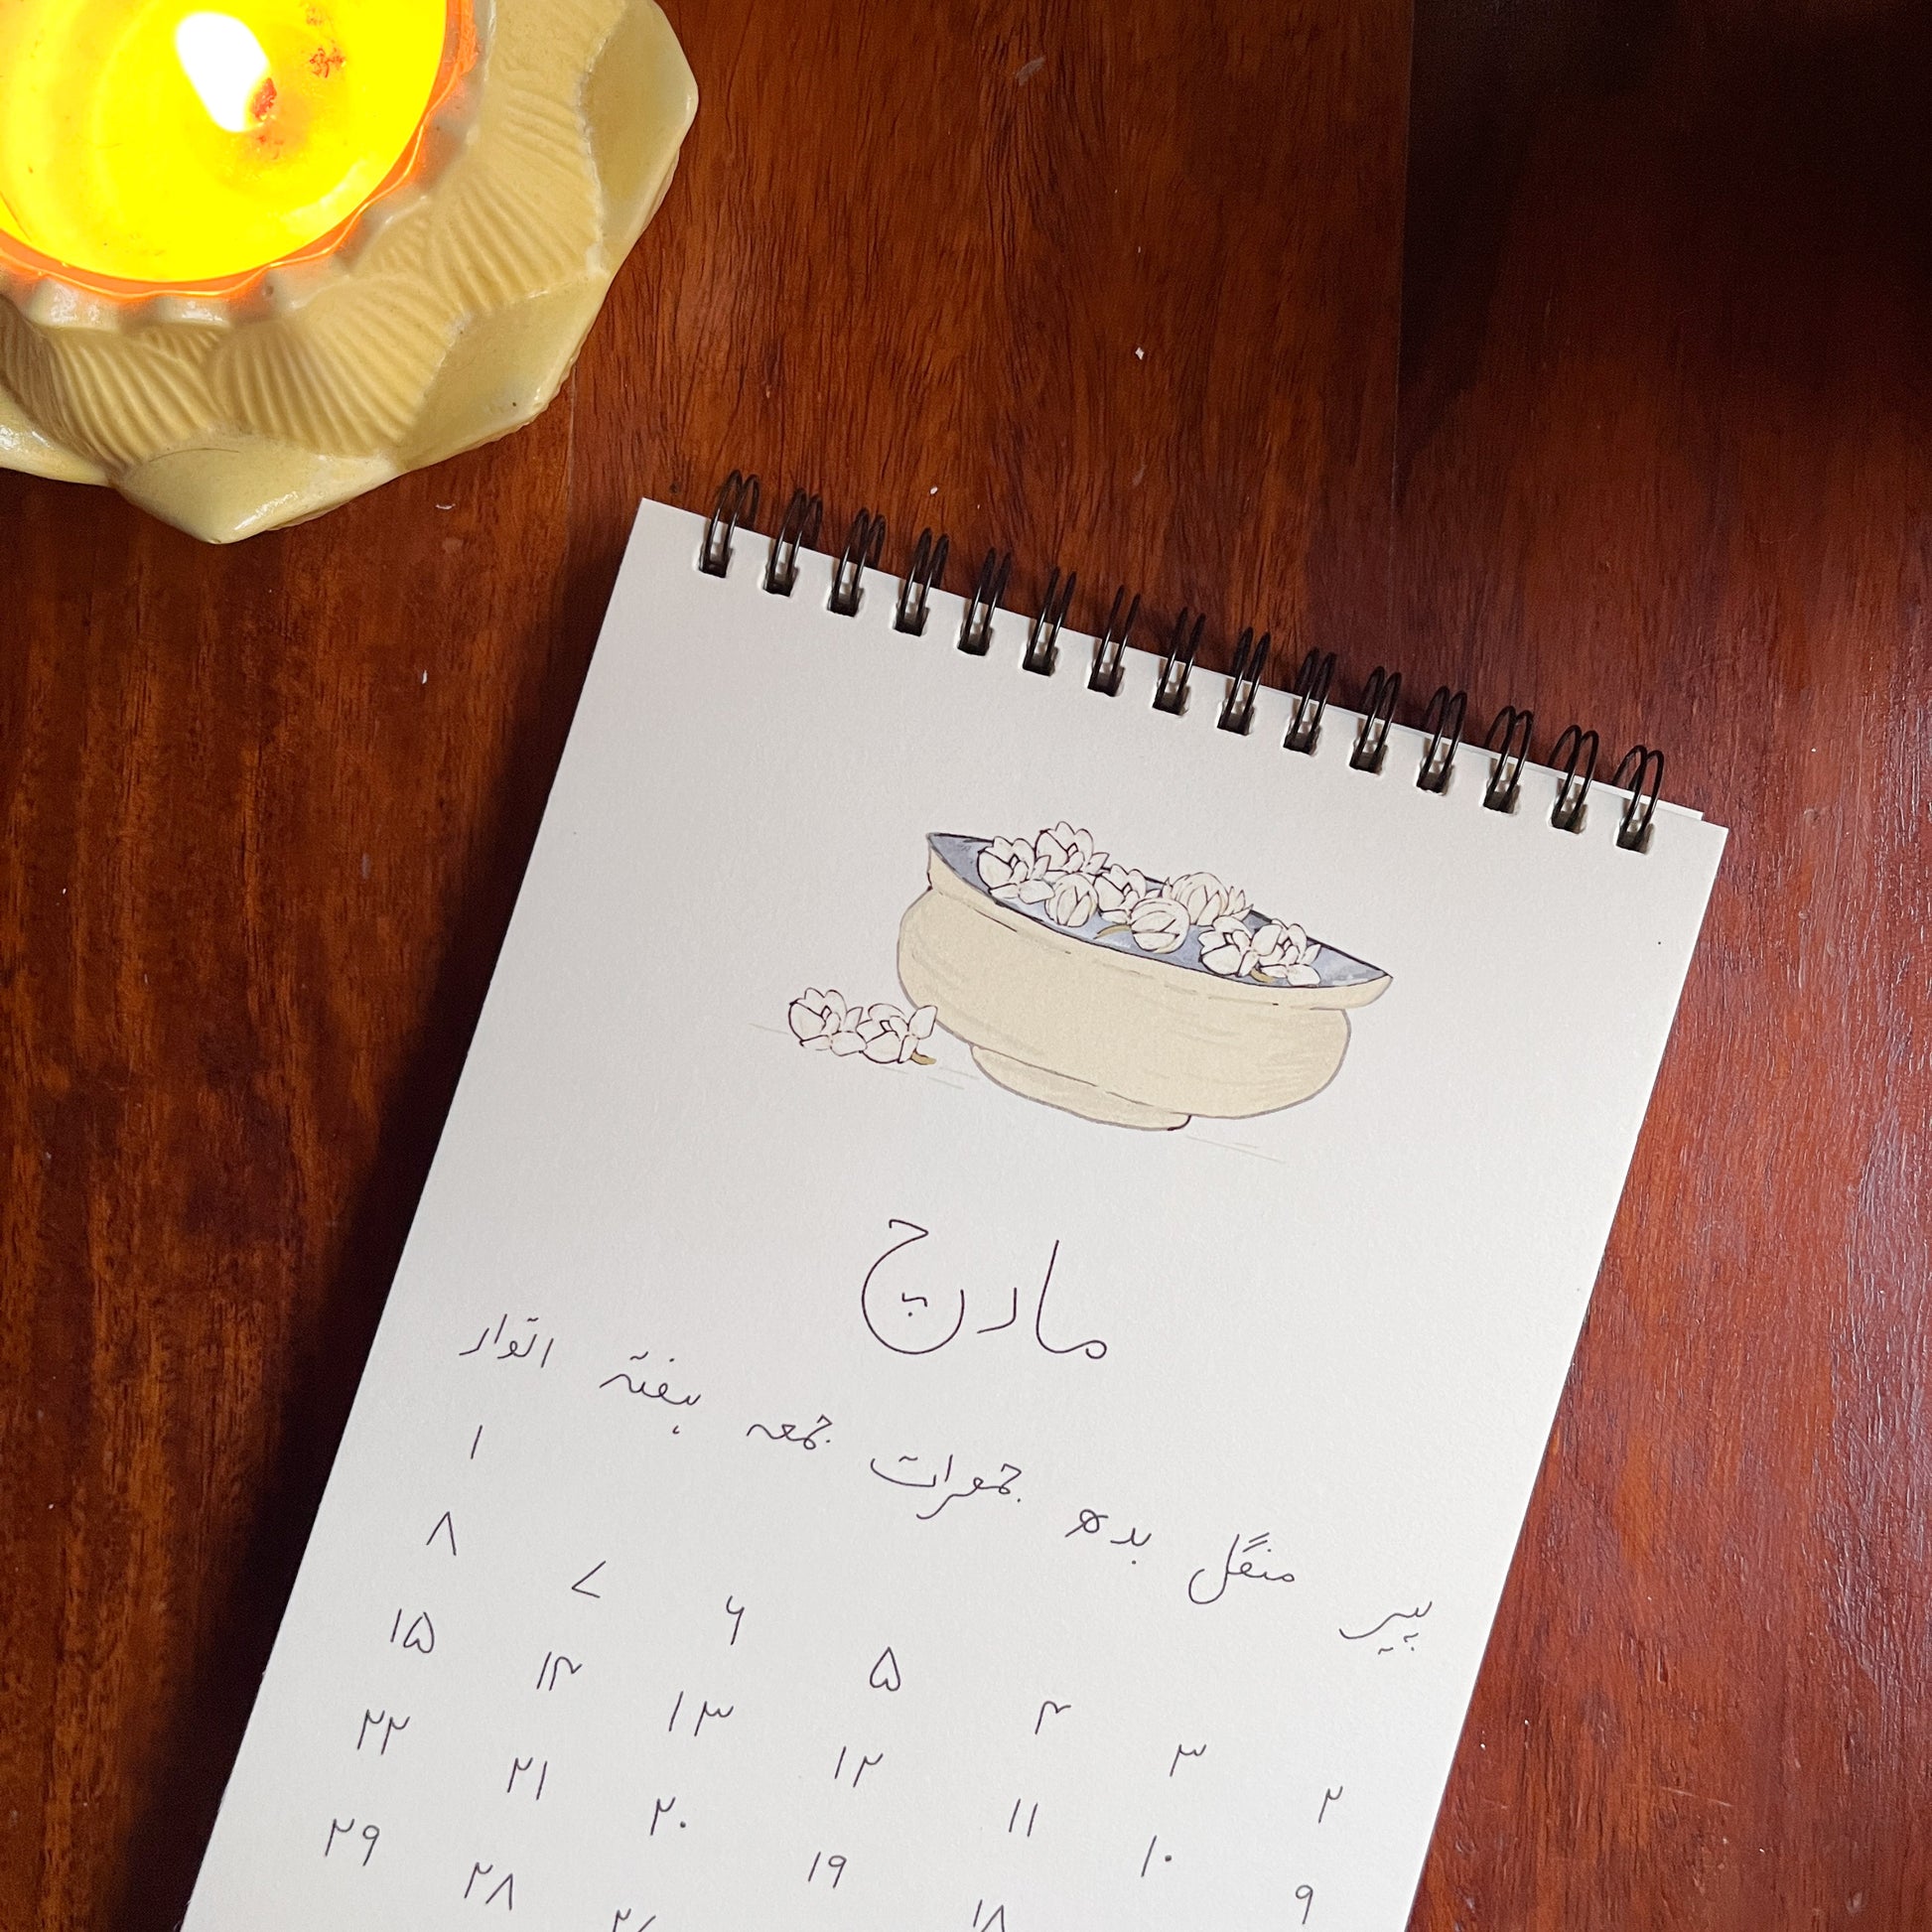 مارچ
پیر منگل بدھ جمعرات جمعہ ہفتہ اتوار
۱
۲ ۳ ۴ ۵ ۶ ۷ ۸
۹ ۱۰ ۱۱ ۱۲ ۱۳ ۱۴ ۱۵
۱۸ ۱۹ ۲۰ ۲۱ ۲۲
۲۸ ۲۹